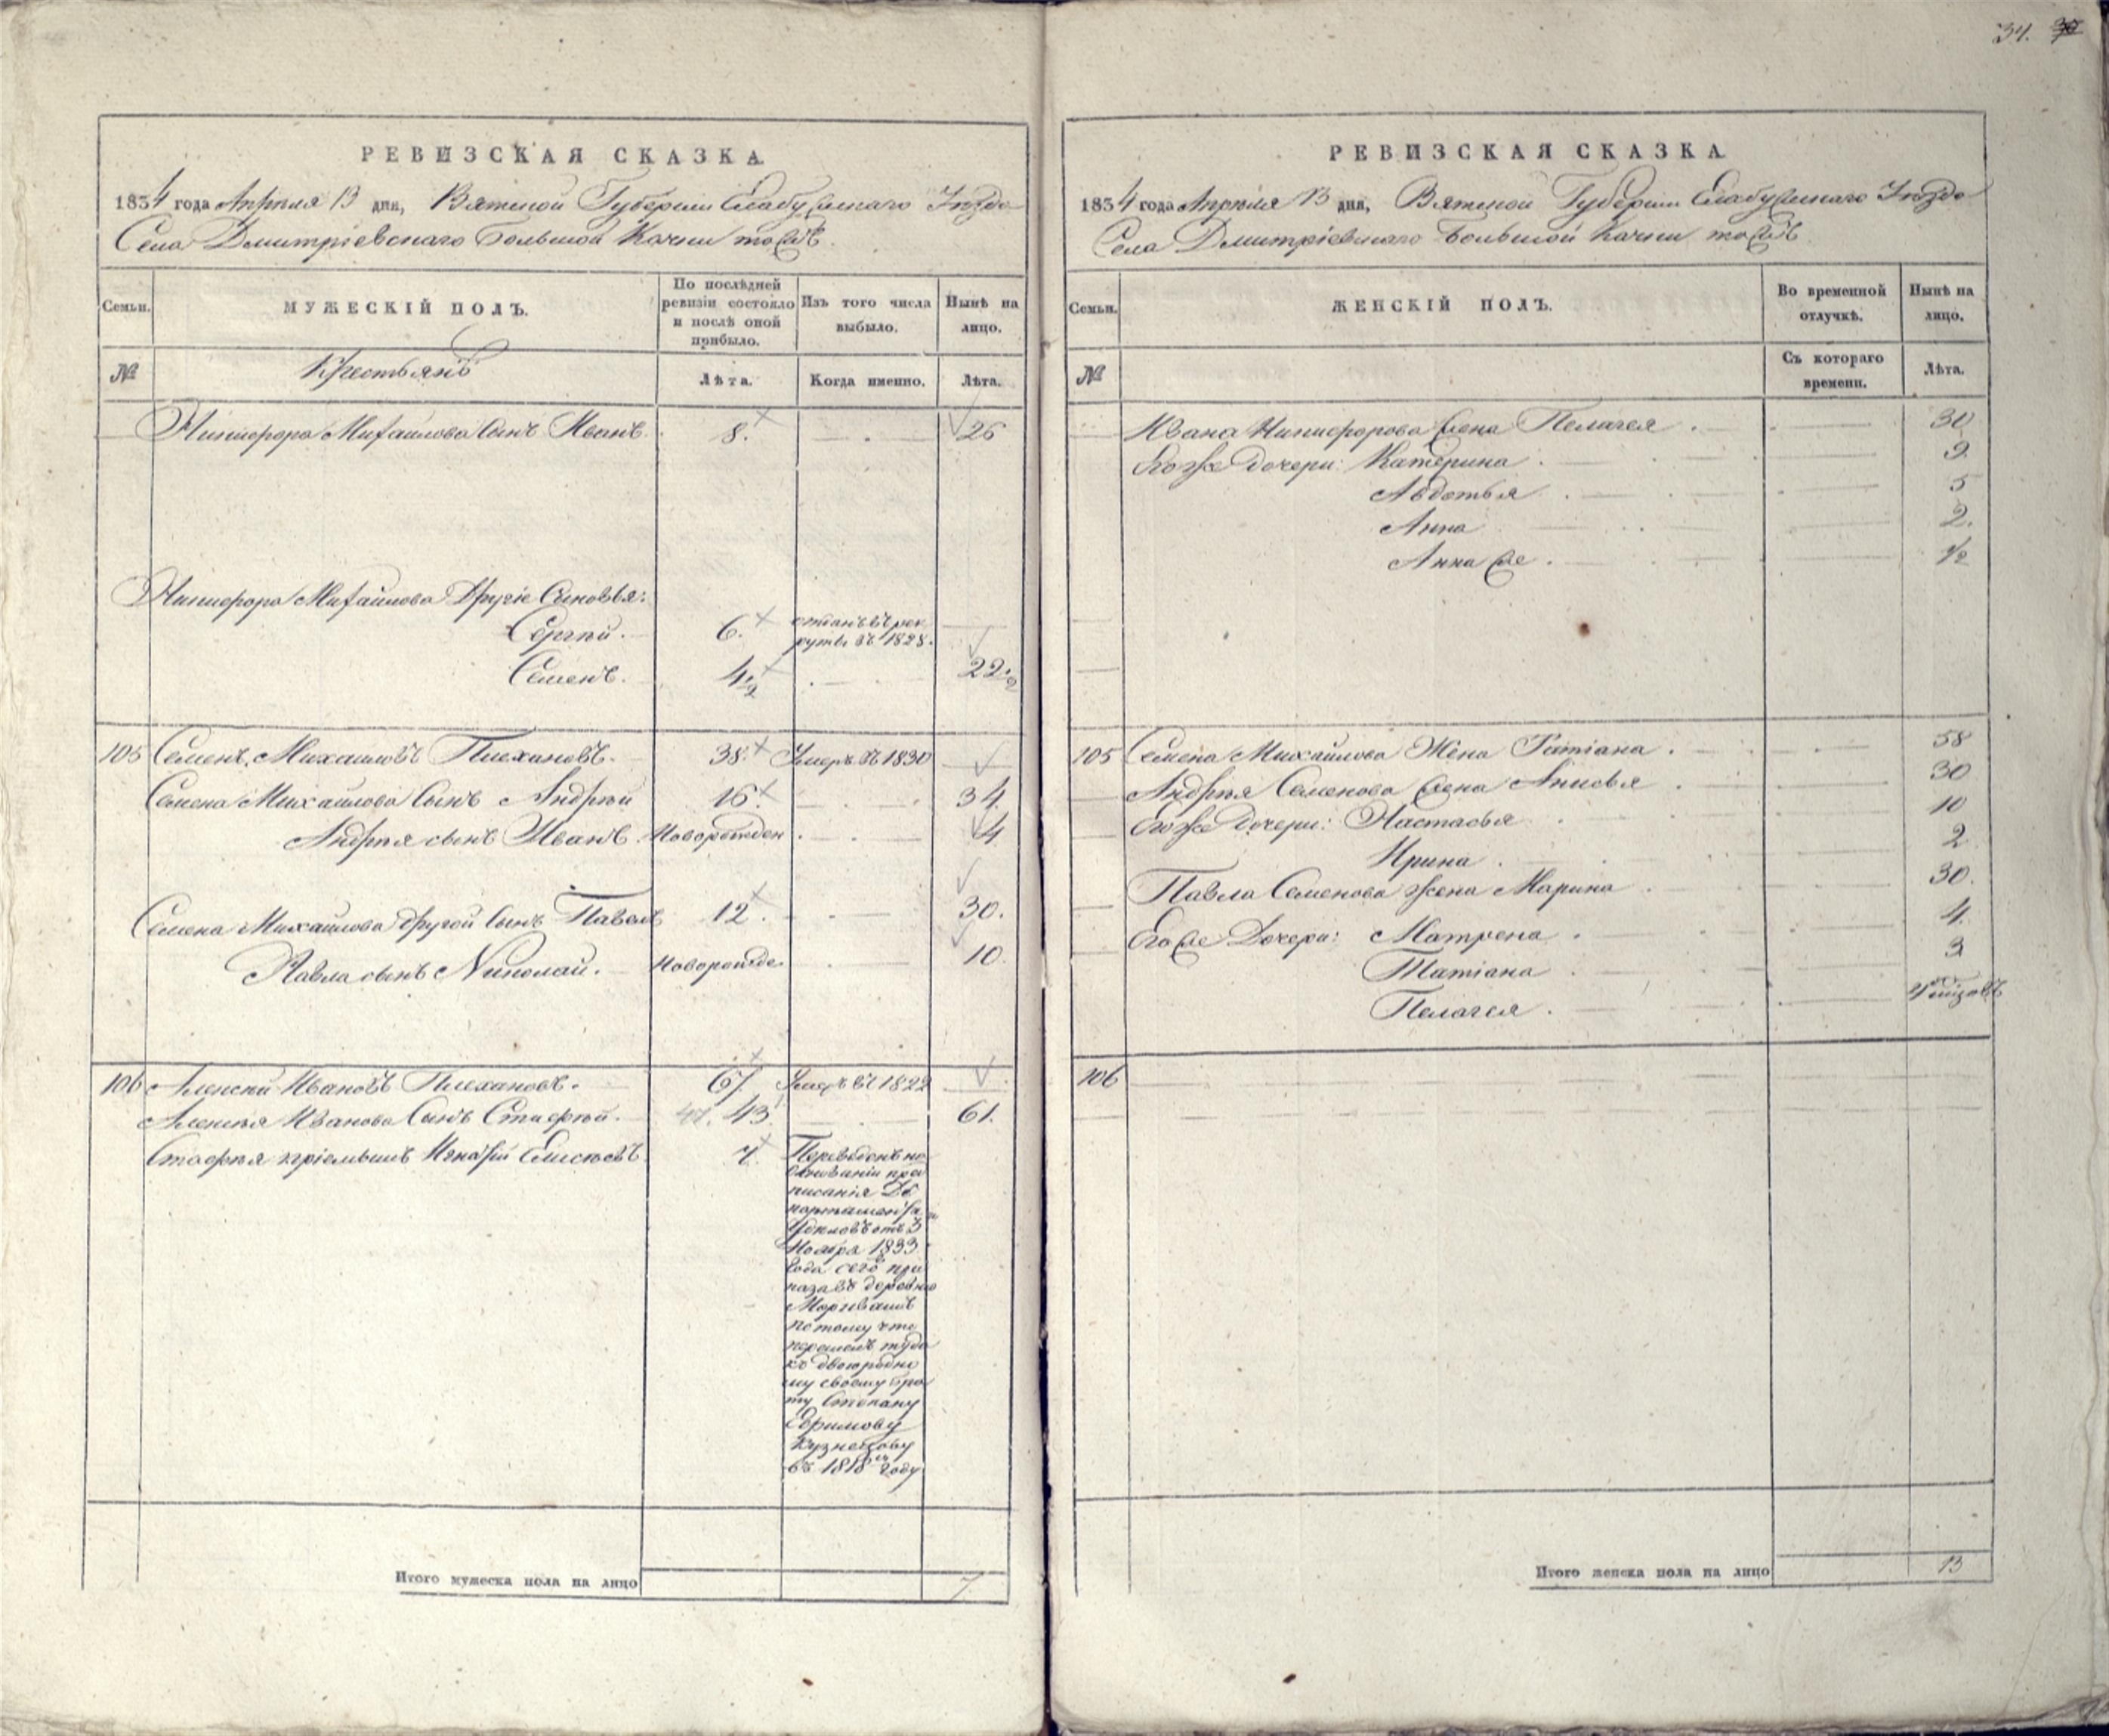 34.
РЕВИЗСКАЯ СКАЗКА.
1834 года Апреля 13 дня, Вятской Губернии Елабужскаго Уезда
Села Дмитріевскаго Большой Качки тожъ.
Семьи.
МУЖЕСКІЙ ПОЛЪ.
По послѣдней ревизіи состояло и послѣ оной прибыло.
Изъ того числа выбыло.
Нынѣ на лицо.
№
Крестьянъ
Лѣта.
Когда именно.
Лѣта.
Никифора Михайлова Сынъ Иванъ. 8. 26
Никифора Михайлова Другіе Сыновья:
Сергѣй. 6. отданъ въ рек
руты въ 1828.
Семенъ. 4½ 22½
105 Семенъ Михаиловъ Плехановъ. 38. Умеръ въ 1830
Семена Михаилова Сынъ Андрѣй 16. 34.
Андрѣя сынъ Иванъ. Новорожден. 4
Семена Михаилова другой Сынъ Павелъ 12. 30.
Павла сынъ Николай. Новорожде. 10.
106 Алексѣй Ивановъ Плехановъ. 67 Умеръ въ 1822
Алексѣя Иванова Сынъ Стафѣй. 43 61.
Стафѣя пріемышъ Игнатій Елисѣевъ 7. Переведенъ на
основаніи пред
писанія Де
партамента
Удѣловъ отъ 3
Ноября 1833
года сего при
каза въ деревню
потому что
перешелъ туда
къ двоюродно
му своему бра
ту Степану
Ефимову
Кузнецову
въ 1818мъ году
Итого мужеска пола на лицо 7
РЕВИЗСКАЯ СКАЗКА.
1834 года Апрѣля 13 дня, Вятской Губерніи Елабужскаго Уѣзда
Села Дмитріевскаго Большой Качки тожъ
Семьи.
ЖЕНСКІЙ ПОЛЪ.
Во временной отлучкѣ.
Нынѣ на лицо.
№
Съ котораго времени.
Лѣта.
Ивана Никифорова жена Пелагея. 30
Его же дочери: Катерина. 9.
Авдотья. 5
Анна 2.
Анна же. ½
105 Семена Михайлова Жена Татіана. 58
Андрѣя Семенова жена Анисья. 30
Его же дочери: Настасья 10
Ирина. 2
Павла Семенова жена Марина. 30.
Его же Дочери: Матрена. 4.
Татіана. 3
Пелагея.
106
Итого женска пола на лицо 13